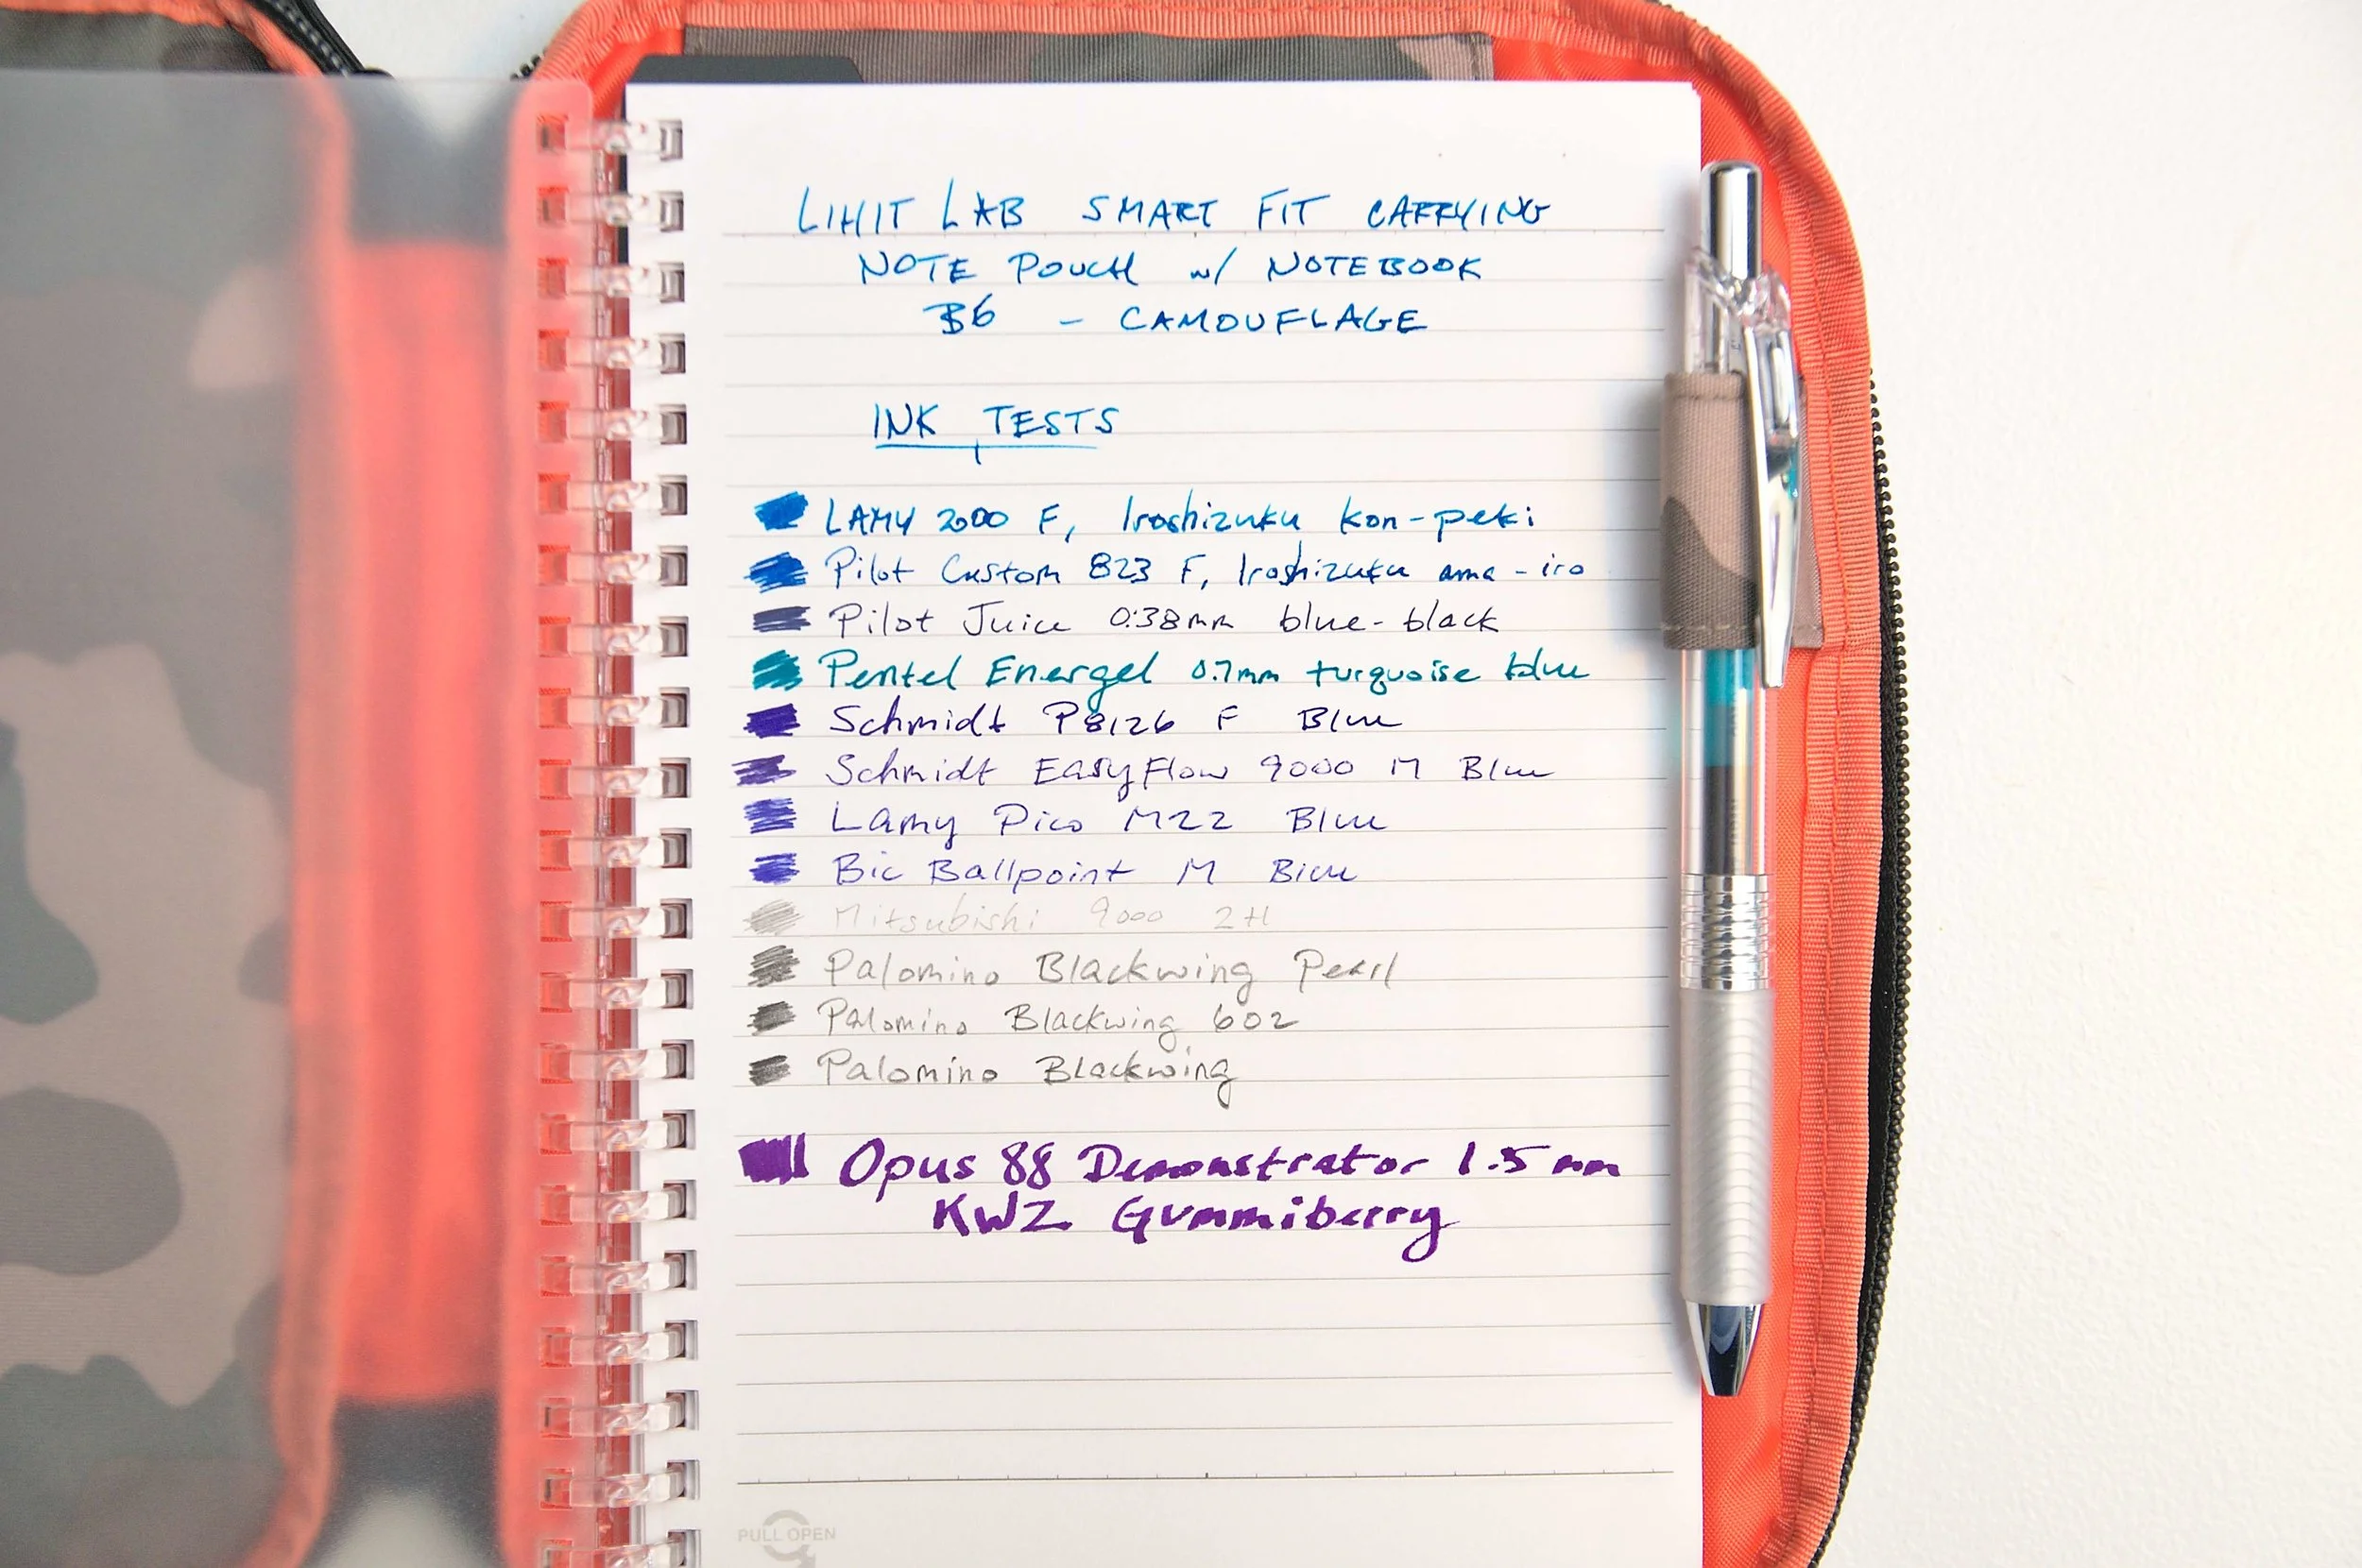 LIHIT LAB SMART FIT CARRYING
NOTE POUCH w/ NOTEBOOK
B6 - CAMOUFLAGE
INK TESTS
LAMY 2000 F, Iroshizuku Kon-peki
Pilot Custom 823 F, Iroshizuku ama-iro
Pilot Juice 0.38mm blue-black
Pentel Energel 0.7mm turquoise blue
Schmidt P8126 F Blue
Schmidt EasyFlow 9000 M Blue
Lamy Pico M22 Blue
Bic Ballpoint M Blue
Mitsubishi 9000 2H
Palomino Blackwing Pearl
Palomino Blackwing 602
Palomino Blackwing
Opus 88 Demonstrator 1.5mm
KWZ Gummiberry
PULL OPEN